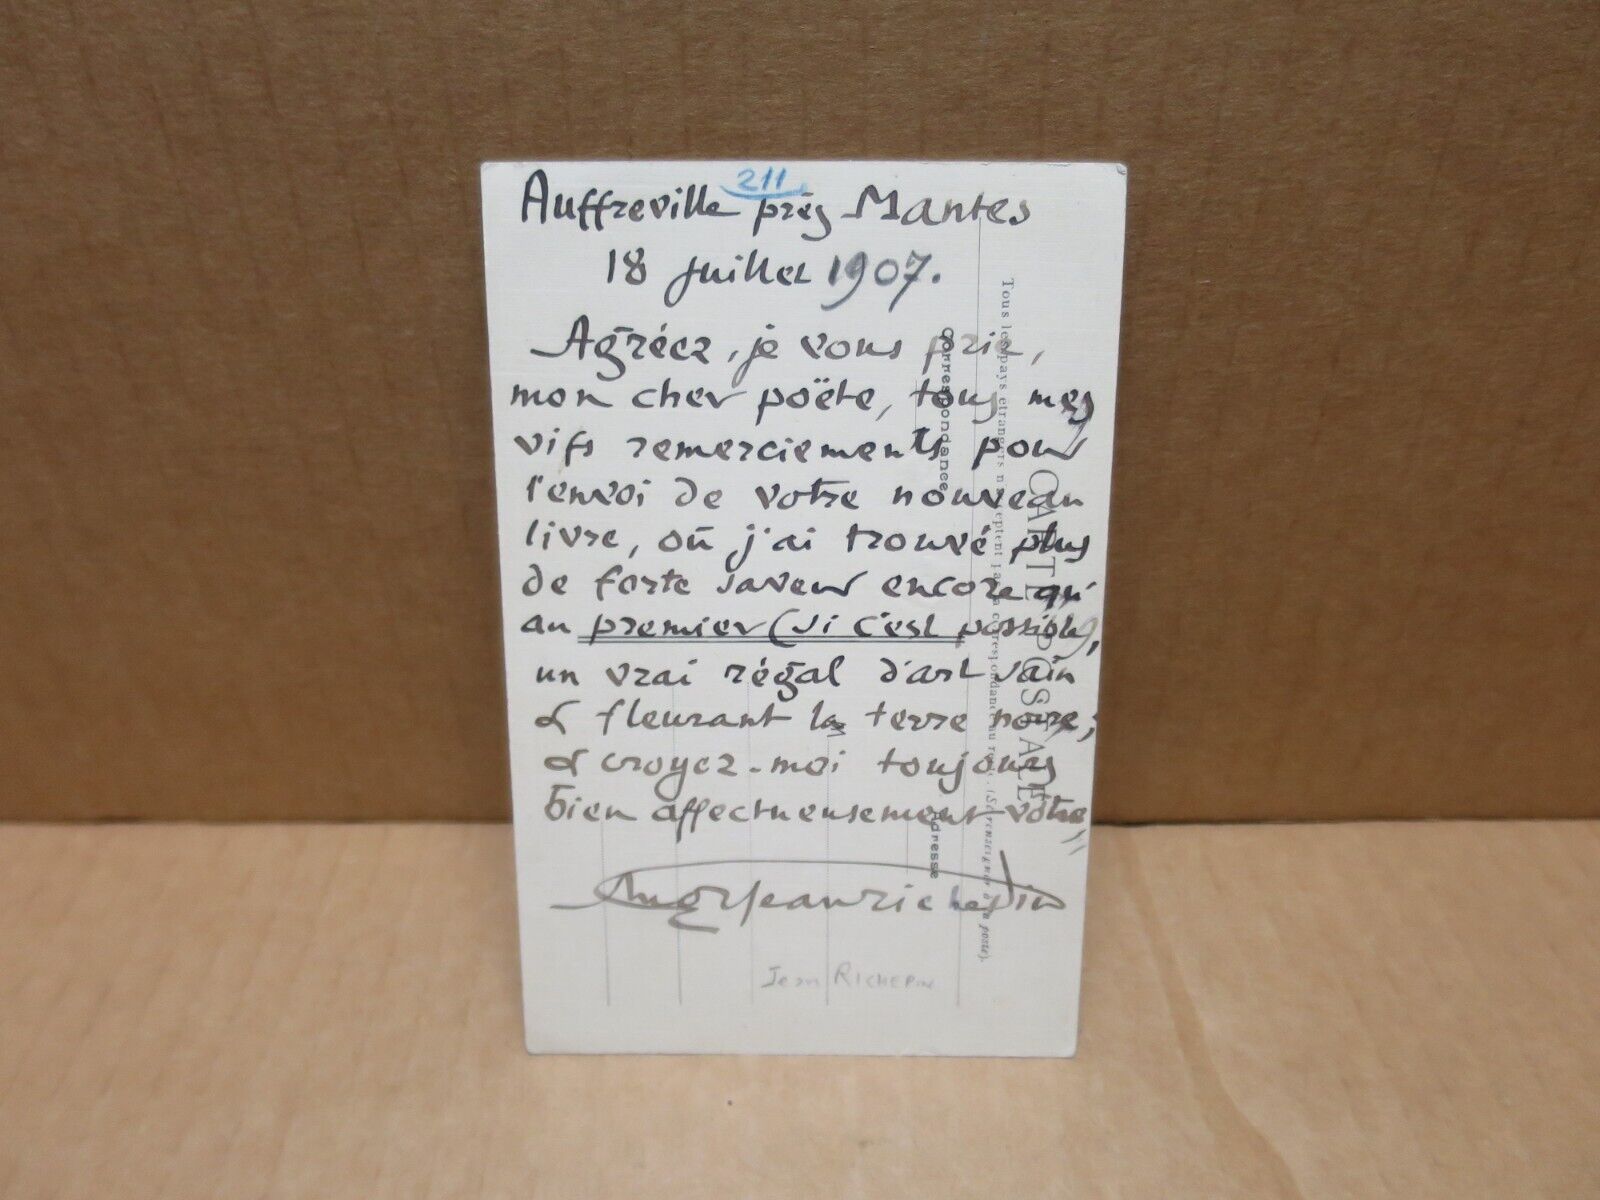 211
Auffreville près Mantes
18 juillet 1907.
Agréez, je vous prie,
mon cher poëte, tous mes
vifs remerciements pour
l'envoi de votre nouveau
livre, où j'ai trouvé plus
de forte saveur encore qu'
au premier (si c'est possible),
un vrai régal d'art sain
& fleurant la terre noire;
& croyez-moi toujours
bien affectueusement vôtre
Jean Richepin
Jean RICHEPIN
CARTE POSTALE
Tous les pays étrangers n'acceptent pas la correspondance au recto. (Se renseigner à la poste).
Correspondance
Adresse